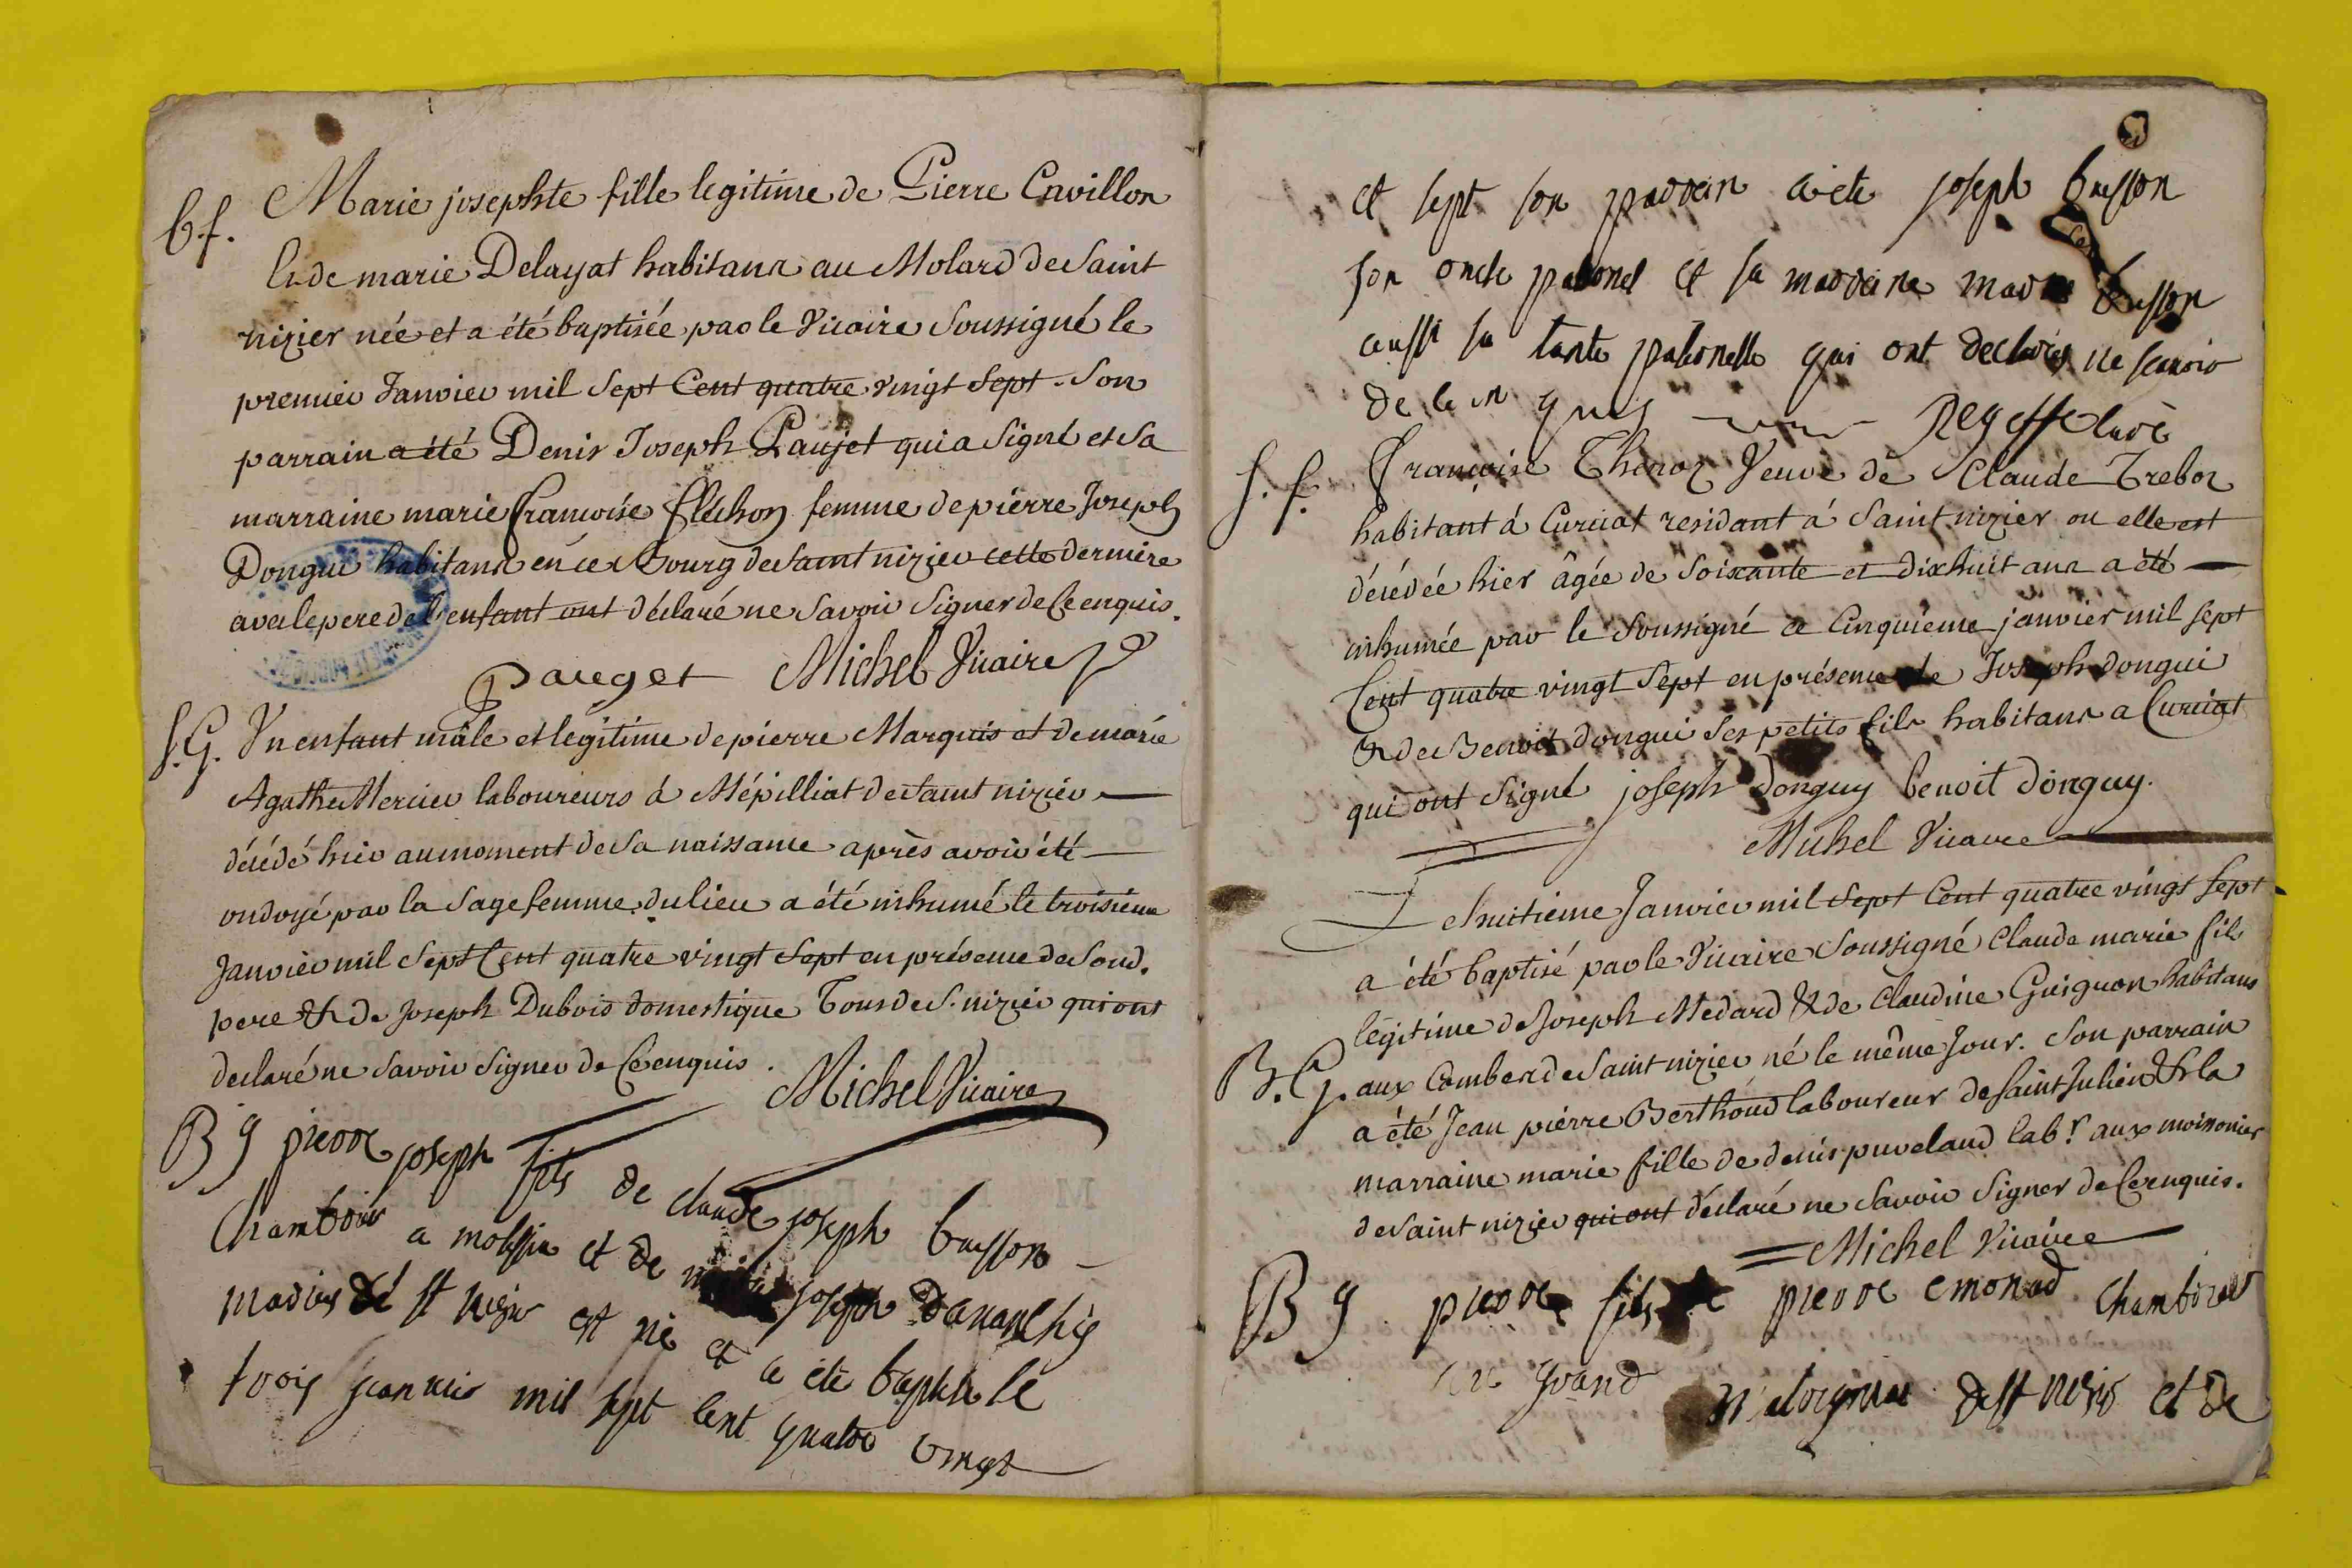 b.f. Marie josephte fille legitime de Pierre Cavillon
& de marie Delayat habitans au Molard de Saint
nizier née et a été baptisée par le Vicaire Soussigné le
premier Janvier mil Sept Cent quatre vingt Sept. Son
parrain a été Denis Joseph Paujet qui a Signé et Sa
marraine marie francoise fléchon femme de pierre Joseph
Dongui habitans en ce Bourg de Saint nizier cette derniére
avec le pere de l'enfant ont déclaré ne Savoir Signer de Ce enquis.
Pauget Michel Vicaire
S.G. Un enfant mâle et légitime de pierre Marquis et de marie
Agathe Mercier laboureurs á Mépilliat de Saint nizier
décédé hier au moment de Sa naissance après avoir été
ondoyé par la Sage femme du lieu a été inhumé le troisieme
Janvier mil Sept Cent quatre vingt Sept en présence de Sond.
pere & de Joseph Dubois domestique Tous de S. nizier qui ont
declaré ne Savoir Signer de Ce enquis.
Michel Vicaire
B g pierre joseph fils de claude joseph buisson
Chambrier a molissin et de joseph
mariés de st nizier est né et a été baptisé le
trois janvier mil sept cent quatre vingt
et sept son parrein a été joseph buisson
son oncle paternel et sa marreine marie buisson
aussi sa tante paternelle qui ont declarés ne scavoir
de ce enquis Regeffe curé
S. f. Françoise Thenoz Veuve de Claude Treboz
habitant á Curciat residant á Saint nizier ou elle est
décédée hier âgée de Soixante et Dix huit ans a été
inhumée par le Soussigné ce Cinquiéme janvier mil Sept
Cent quatre vingt Sept en présence de Joseph dongui
& de Benoit dongui Ses petits fils habitans a Curciat
qui ont Signé joseph donguy benoit donguy.
Michel Vicaire
Le huitieme Janvier mil Sept Cent quatre vingt Sept
a été baptisé par le Vicaire Soussigné Claude marie fils
légitime de Joseph Medard & de Claudine Guignon habitans
B. G. aux Combes de Saint nizier né le même Jour. Son parrain
a été Jean piérre Berthoud laboureur de Saint Julien & la
marraine marie fille de denis puvelaud labr. aux moissonier
de Saint nizier qui ont déclaré ne Savoir Signer de Ce enquis.
Michel Vicaire
B g pierre fils de pierre emonad Chambrier
au grand de st nizier et de